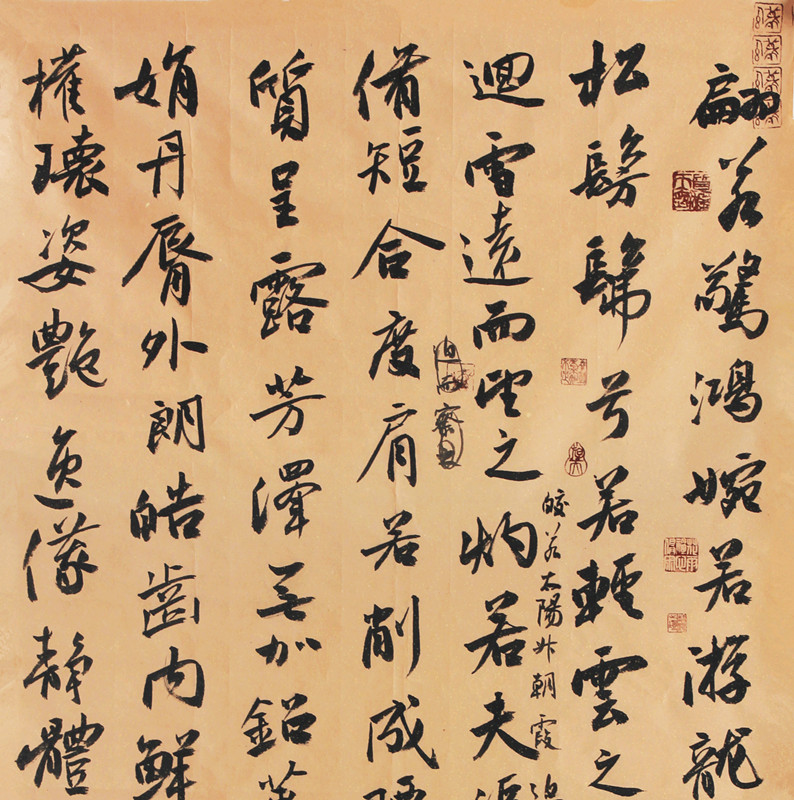 翩若驚鴻婉若游龍
松髣髴兮若輕雲之
皎若太陽升朝霞
迴雪遠而望之灼若夫
迫而察
脩短合度肩若削成
質呈露芳澤无加鉛華
娟丹脣外朗皓齒内鮮
權瓌姿艷逸儀靜體